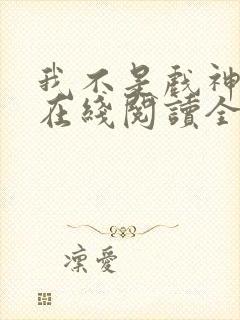 我不是戏神
在綫閱讀全
凜愛